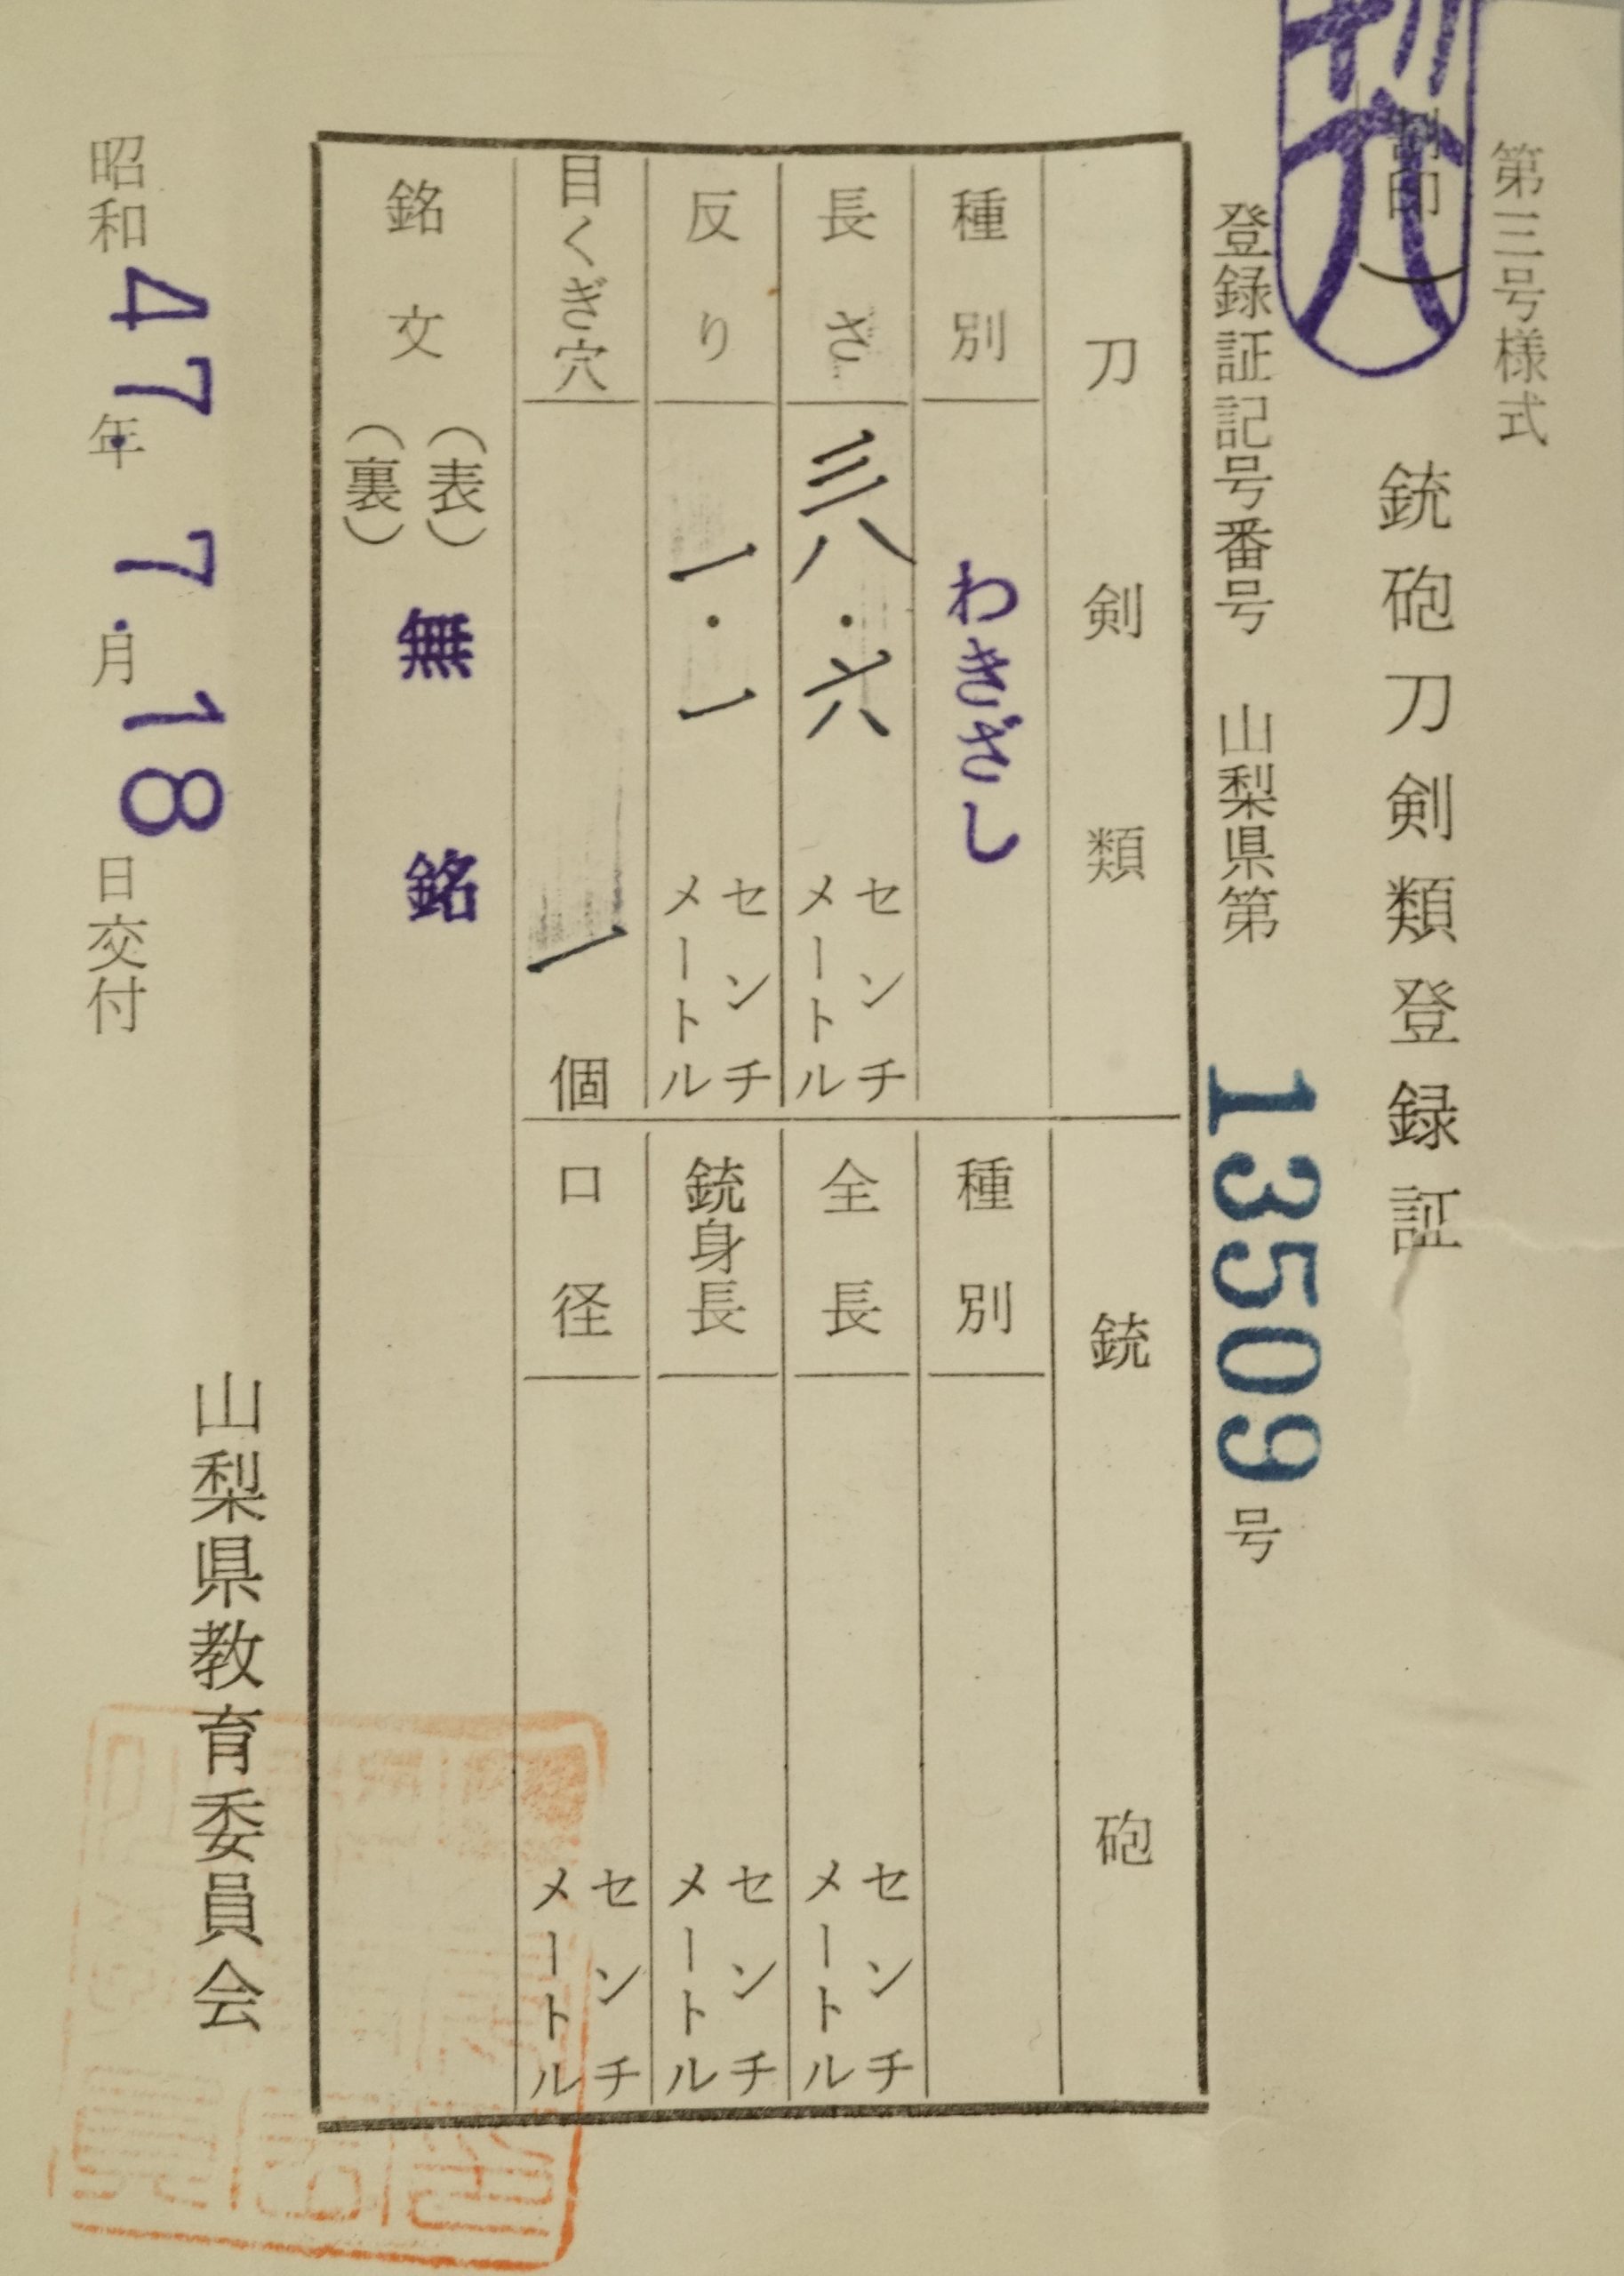 第三号様式
銃砲刀剣類登録証
割印
登録証記号番号 山梨県第 13509 号
刀剣類
銃砲
種別 わきざし
種別
長さ 三八・六 センチメートル
全長 センチメートル
反り 一・一 センチメートル
銃身長 センチメートル
目くぎ穴 一 個
口径 センチメートル
銘文 (表) 無銘
(裏)
昭和47年7月18日交付
山梨県教育委員会